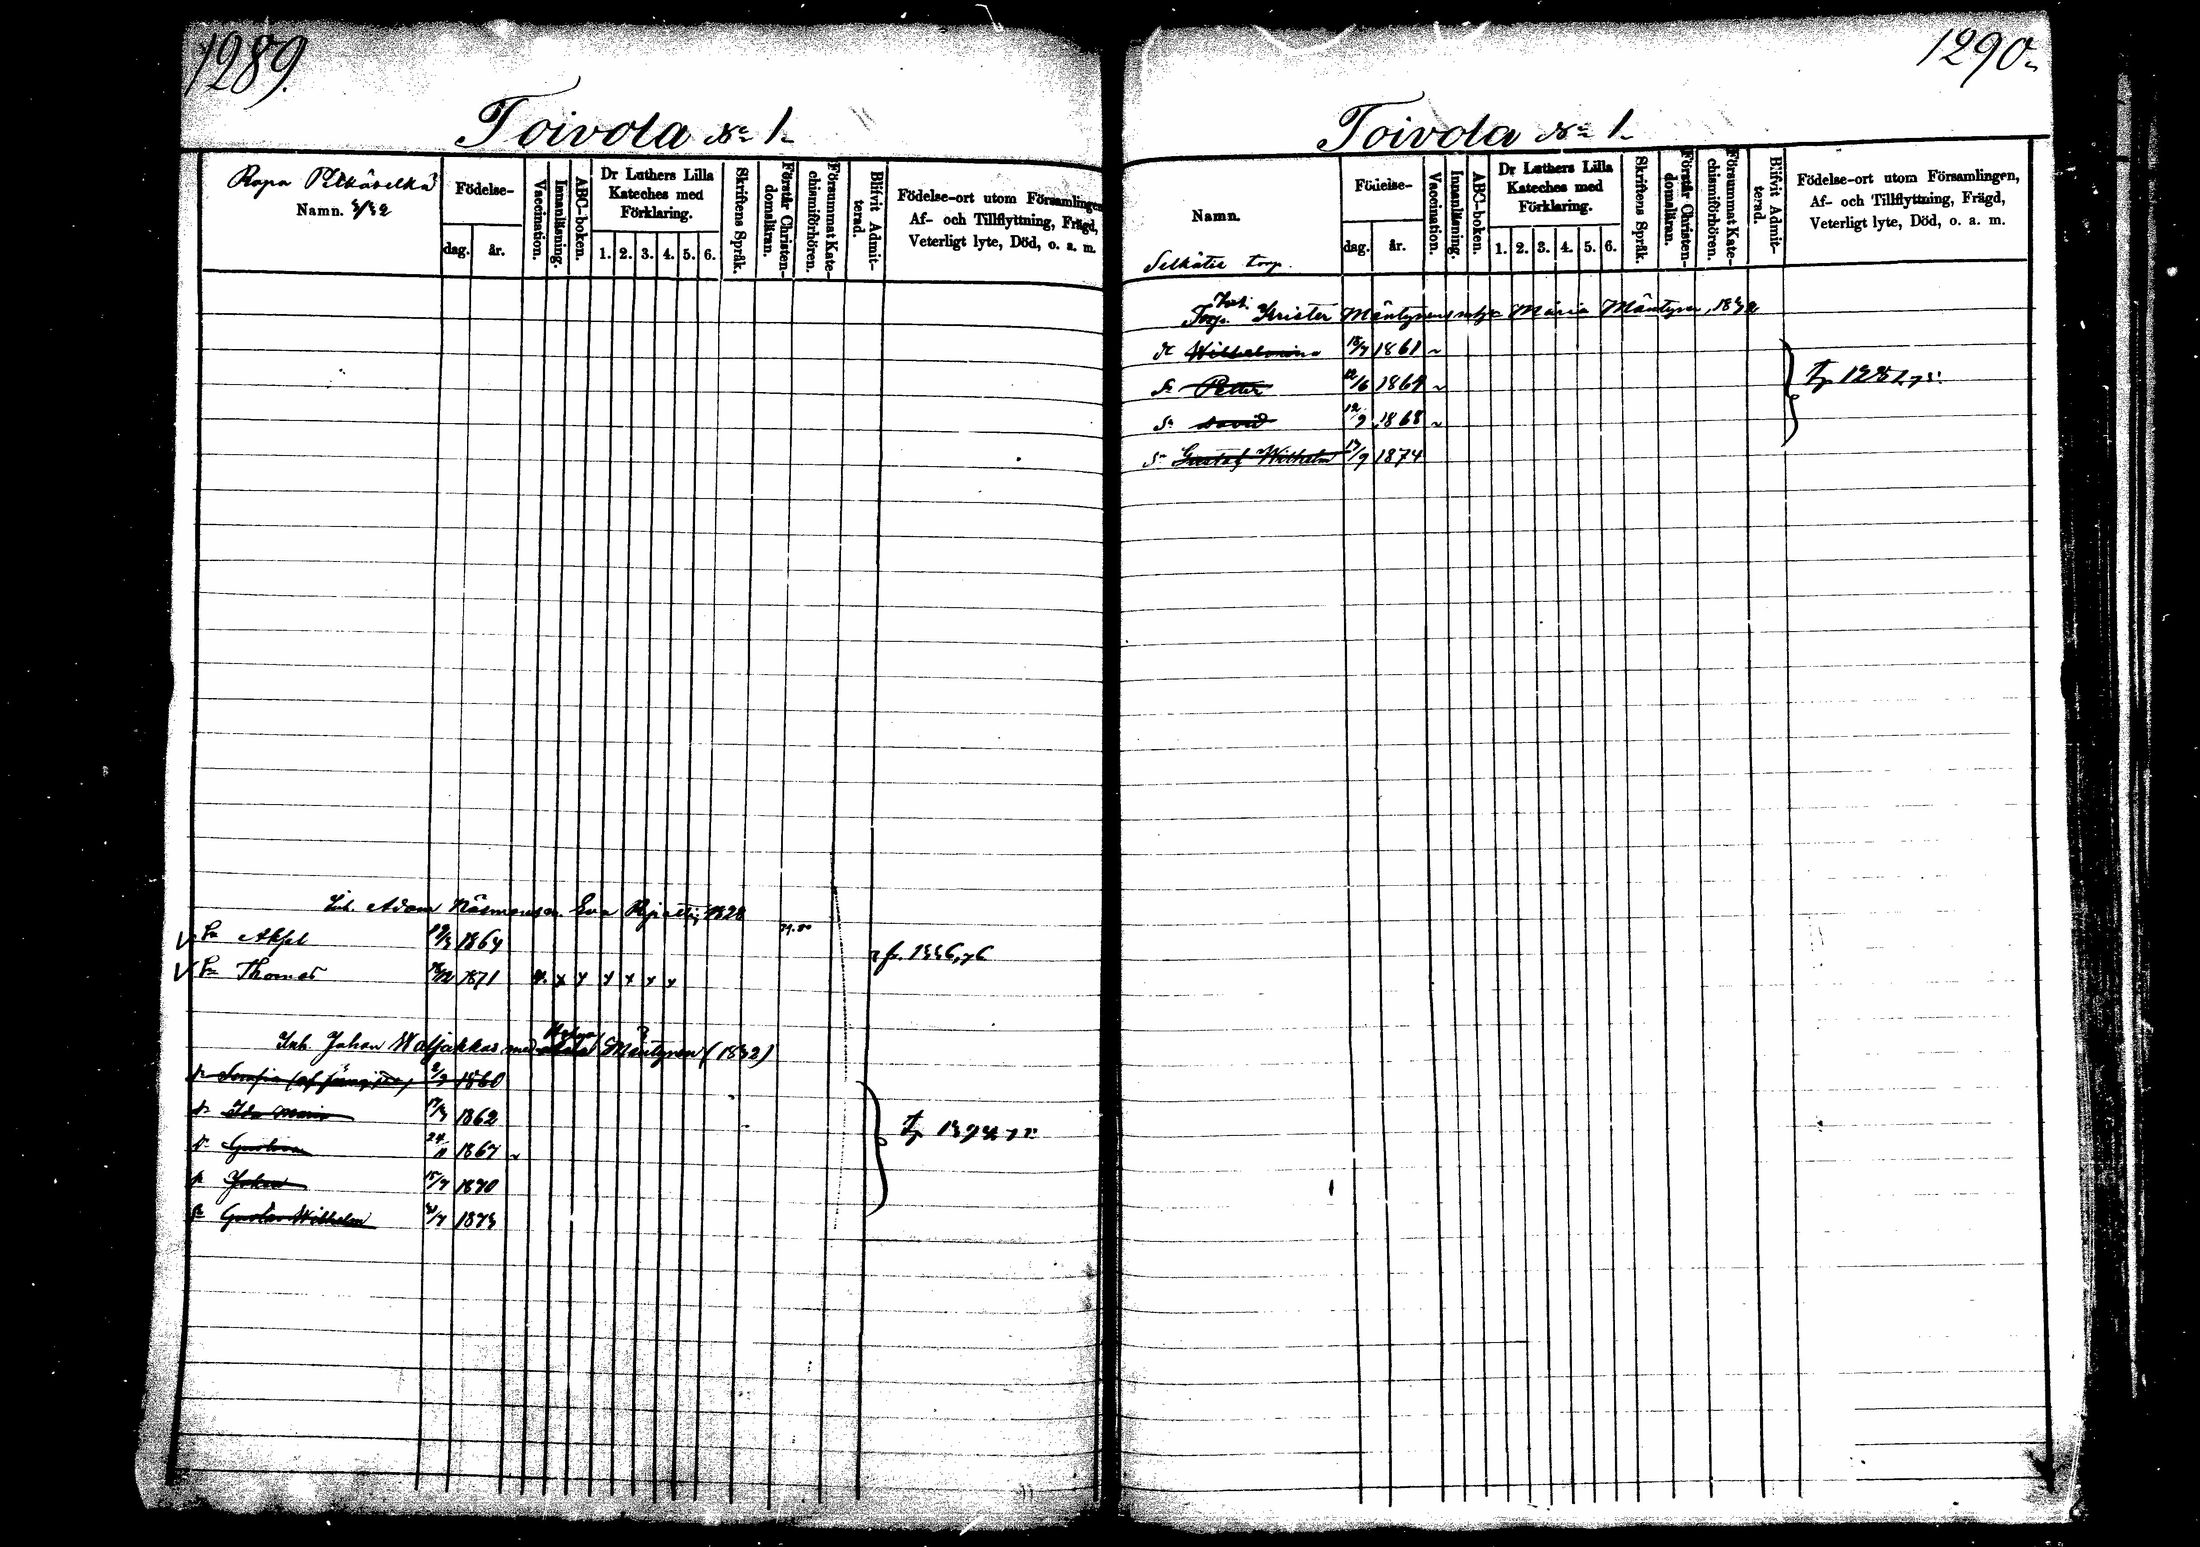 1289.
Toivola No 1.
Födelse-
Namn.
dag. år.
Vaccination.
Innanläsning.
ABC-boken.
Dr Luthers Lilla
Kateches med
Förklaring.
1. 2. 3. 4. 5. 6.
Skriftens Språk.
Förstår Christen-
domsläran.
Försummat Kate-
chismiförhören.
Blifvit Admit-
terad.
Födelse-ort utom Församlingen,
Af- och Tillflyttning, Frägd,
Veterligt lyte, Död, o. a. m.
Inh. Adam Eva 1828
Sn Aksel 19/3 1864
Sn Thomas 1871 x x x x x x
fr. 1336,76
Inh. Johan Waljakkas med Mäntynen (1832)
dr Soofia 1860
dr Ida Maria 17/3 1862
dr Gustava 24/11 1867
sn Johan 15/7 1870
sn Gustav Wilhelm 1873
1290.
Toivola No 1.
Namn.
Selkätie torp.
Födelse-
dag. år.
Vaccination.
Innanläsning.
ABC-boken.
Dr Luthers Lilla
Kateches med
Förklaring.
1. 2. 3. 4. 5. 6.
Skriftens Språk.
Förstår Christen-
domsläran.
Försummat Kate-
chismiförhören.
Blifvit Admit-
terad.
Födelse-ort utom Församlingen,
Af- och Tillflyttning, Frägd,
Veterligt lyte, Död, o. a. m.
Torp. Krister Mäntynens Maria Mäntynen, 1832
dr Wilhelmina 18/7 1861
Sn Petter 12/6 1864
Sn David 12/9 1868
Sn Gustaf Wilhelm 17/9 1874